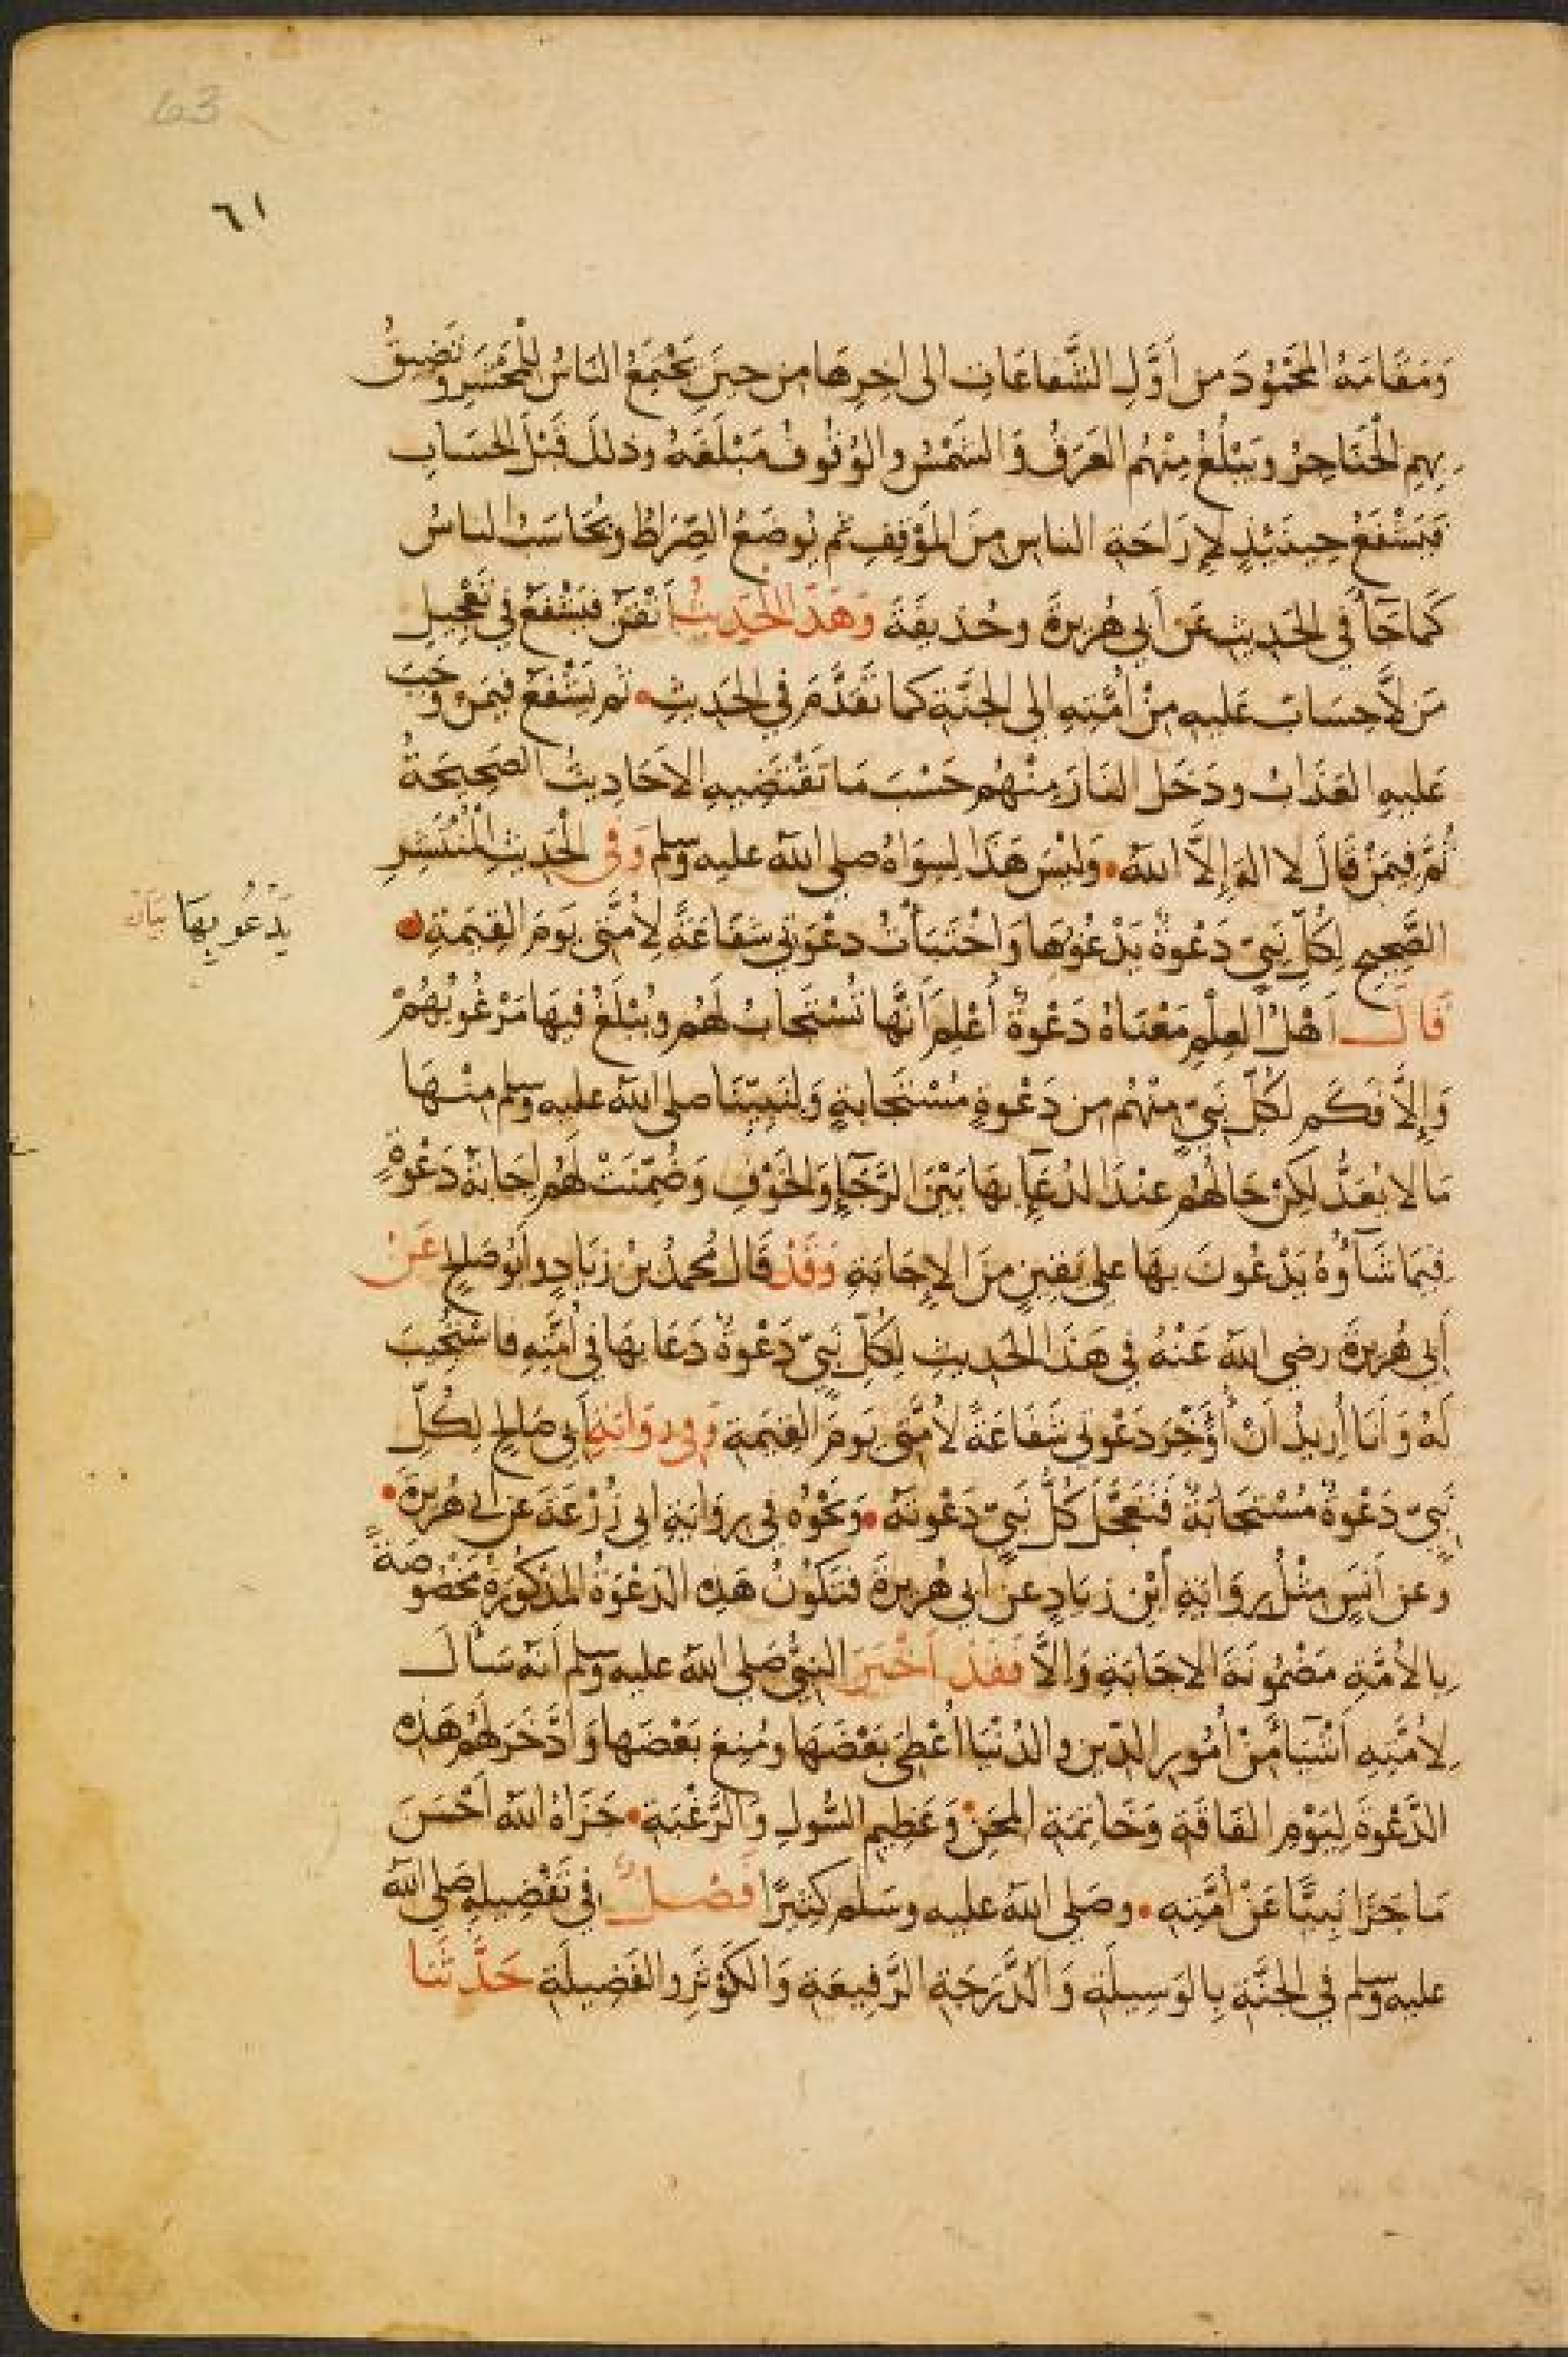 63
٦١
وَمَقَامَهُ المَحْمُودَ من أَوَّلِ الشَّفَاعَاتِ الى اخِرِهَا مِن حِينَ يَجْتَمِعُ النَاسُ لِلْمَحْشَرِ وتَضِيقُ
بِهِمِ الْحَنَاجِرُ ويَبْلُغُ مِنْهُم العَرَقُ وَالشَمْسُ والوُقُوفُ مَبْلَغَهُ وذلكَ قَبْلَ الحسَابِ
فَيَشْفَعُ حِينَئِذٍ لإِرَاحَةِ الناسِ مِنَ المَوْقِفِ ثم يُوضَعُ الصِّرَاطُ ويُحَاسَبُ الناسُ
كَمَا جَآءَ في الحَدِيثِ عَن أَبي هُرَيرَةَ وحُذَيفَةَ وَهَذَا الحَدِيثُ أَتْقَنُ فيَشْفَعُ في تَعْجِيلِ
مَن لاَ حِسَابَ عَلَيهِ مِنْ أُمَّتِهِ الى الجَنَّةِ كما تَقَدَّمَ في الحَدِيثِ ثم يَشْفَعُ فِيمَن وَجَبَ
عَلَيهِ العَذَابُ ودَخَلَ النَارَ مِنْهُم حَسْبَ مَا تَقْتَضِيهِ الاَحَادِيثُ الصَحِيحَةُ
ثُمَّ فِيمَنْ قَالَ لا الهَ إِلاَّ اللهُ وَلَيْسَ هَذَا لِسِوَاهُ صلى الله عليه وسلم وَفي الْحَدِيثِ الْمُنْتَشِرِ
الصَّحِيحِ لِكُلِّ نَبيّ دَعْوةٌ يَدْعُوهَا وَاخْتَبَأْتُ دعْوَتي شَفَاعَةً لأُمَّتي يَومَ القِيمَةِ
يَدْعُو بِهَا
قَالَ اَهْلُ العِلْمِ مَعْنَاهُ دَعْوةٌ أُعْلِمَ أَنَّهَا تُسْتَجَابُ لَهُم ويُبْلَغُ فيهَا مَرْغُوبُهُمْ
وَإِلاَّ فَكَم لكُلّ نَبيّ مِنْهُم مِن دَعْوةٍ مُسْتَجَابةٍ وَلنَبِيّنَا صلى الله عليه وسلم مِنْهَا
مَا لا يُعَدُّ لكِنْ حَالُهُم عِنْدَ الدُعَآءِ بهَا بَيْنَ الرَّجَآءِ وَالخَوْفِ وَضُمِّنَتْ لَهُم اِجَابَةُ دَعْوةٍ
فِيمَا شَآؤُهُ يَدْعُونَ بهَا على يَقِينٍ مِنَ الاِجَابَةِ وَقَدْ قَالَ مُحمدُ بْنُ زِيَادٍ وأَبُو صَالِحٍ عَنْ
أَبي هُرَيرَةَ رضي الله عَنْهُ في هَذَا الحَدِيثِ لِكُلِّ نَبيّ دَعْوةٌ دَعَا بهَا في أُمَّتِهِ فاسْتُجِيبَ
لَهُ وَأَنَا أُرِيدُ اَنْ أُؤَخِّرَ دَعْوتي شَفَاعَةً لأُمَّتي يَومَ القِيمَةِ وَفي رِوَايَةِ أَبي صَالِحٍ لكُلّ
نَبيّ دَعْوةٌ مُسْتَجَابَةٌ فَتَعَجَّلَ كُلُّ نَبيّ دَعْوتَهُ وَنَحْوُه في رِوَايَةِ ابي زُرْعَةَ عَن ابي هُرَيرَةَ
وعن اَنَسٍ مِثْلُ رِوَايَةِ اَبْنِ زِيَادٍ عَن ابي هُرَيرَةَ فتَكُونُ هَذِهِ الدَعْوَةُ المَذكُورَةُ مَخْصُوصَةً
بِالأُمَّةِ مَضْمُونَةَ الاجَابَةِ وَالاَّ فَقَدْ اَخْبَرَ النبيُّ صَلى الله عليه وسلم اَنَّهُ سَأَلَ
لأُمَّتِهِ اَشْيَآءَ مِنْ اُمُورِ الدِّينِ والدُنْيَا أُعْطِيَ بَعْضَهَا ومُنِعَ بَعْضَهَا وَادَّخَرَ لَهُم هَذِهِ
الدَّعْوَةَ لِيَوْمِ الفَاقَةِ وَخَاتِمَةِ المِحَنْ وَعَظِيمِ السُّولِ وَالرَّغْبَةِ جَزَاهُ الله اَحْسَنَ
مَا جَزَا نَبِيًّا عَنْ أُمَّتِهِ وصَلى الله عليه وسَلم كَثِيرًا فَصْلٌ في تَفْضِيلِهِ صَلى الله
عليه وسلم في الجنَّةِ بِالوَسِيلَةِ وَالدَّرَجَةِ الرَّفِيعَةِ وَالكَوْثَرِ والفَضِيلَةِ حَدَّثَنَا